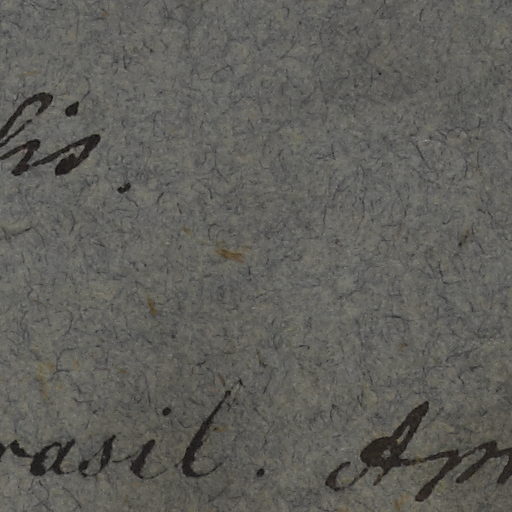 lis.
rasil. Am